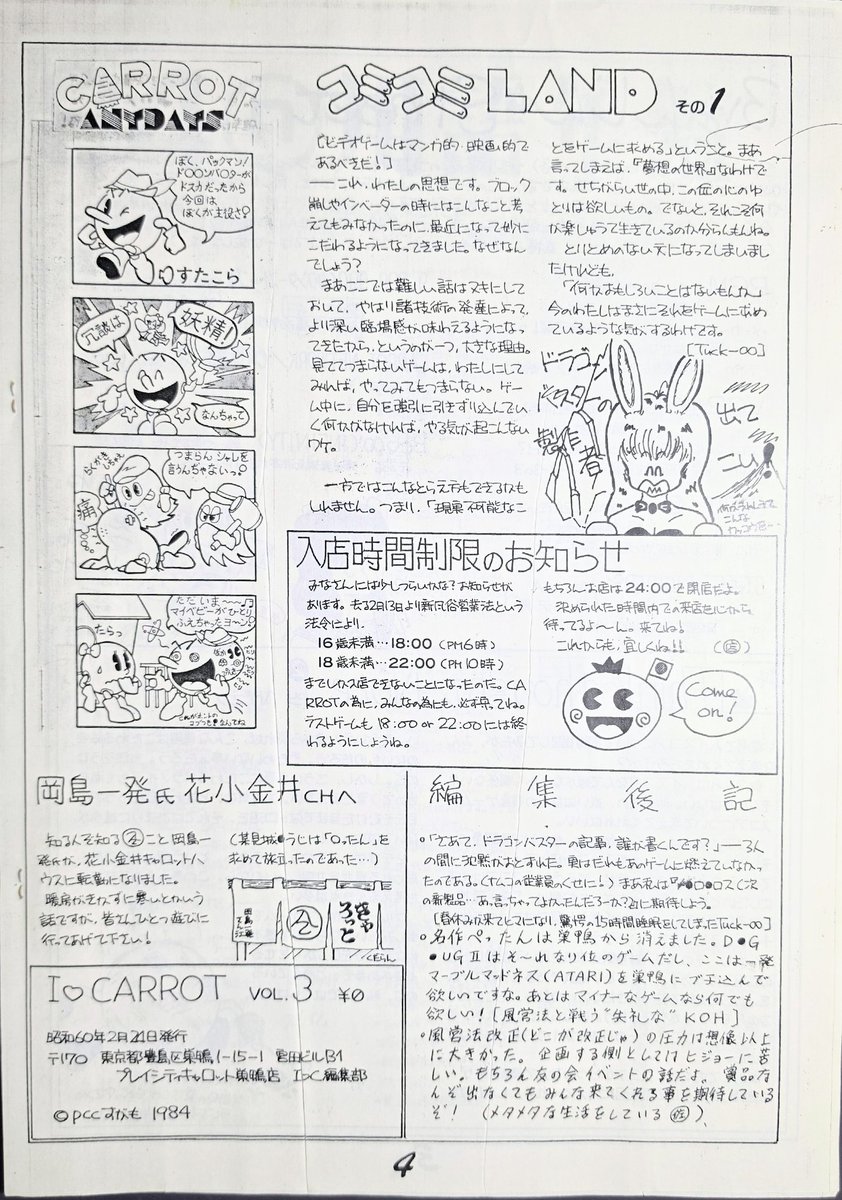 CARROT
ANYDAYS
ぼく、パックマン!
ドOOンバOターが
ドスカだったから
今回は
ぼくが主役さ?
すたこら
冗談は
妖精!
なんちゃって
らくがきしちゃえ
つまらんシャレを
言うんぢゃないっ?
痛
ただいま〜〜〜♪
マイベビーがひとり
ふえちゃったヨ〜ン?
たらっ
コミコミ LAND その1
「ビデオゲームはマンガ的・映画的で
あるべきだ!」
――これ、わたしの思想です。ブロック
崩しやインベーダーの時にはこんなこと考
えてもみなかったのに、最近になって妙に
こだわるようになってきました。なぜなん
でしょう?
まあここでは難しい話はヌキにして
おいて、やはり諸技術の発達によって、
より深い臨場感が味わえるようになっ
てきたから、というのが一つ、大きな理由。
見ててつまらないゲームは、わたしにして
みれば、やってみてもつまらない。ゲー
ム中に、自分を強引に引きずり込んでい
く何かがなければ、やる気が起こんない
ワケ。
一方ではこんなとらえ方もできるかも
しれません。つまり、「現実不可能なこ
とをゲームに求める」ということ。まあ
言ってしまえば、『夢想の世界』なわけで
す。せちがらい世の中、この位の心のゆ
とりは欲しいもの。でないと、それこそ何
が楽しゅうて生きているのか分らんもんね。
とりとめのない文になってしまいまし
たけれども、
「何かおもしろいことはないもんか」
今のわたしはまさにそれをゲームに求め
ているような気がするわけです。
[Tuck-OO]
ドラゴン
バスターの
製作者
出て
こい!
入店時間制限のお知らせ
みなさんには少しつらいかな?お知らせが
あります。去る2月13日より新風俗営業法という
法令により、
16歳未満…18:00(PM6時)
18歳未満…22:00(PM10時)
までしか入店できないことになったのだ。CA
RROTの為に、みんなの為にも、必ず守ってね。
ラストゲームも18:00 or 22:00には終
わるようにしようね。
もちろんお店は24:00で閉店だよ。
決められた時間内での来店を心から
待ってるよ〜ん。来てね!
これからも、宜しくね!!
Come
on!
岡島一発氏 花小金井CHへ
知る人ぞ知る こと岡島一
発氏が、花小金井キャロットハ
ウスに転勤になりました。
暖房がきかずに寒いとかいう
話ですが、皆さんひとつ遊びに
行ってあげて下さい!
(某見城●うじは「ロったん」を
求めて旅立ったのであった…)
きゃ
ろっと
I♡CARROT VOL.3 ¥0
昭和60年2月21日発行
〒170 東京都豊島区巣鴨1-15-1 宮田ビルB1
プレイシティキャロット巣鴨店 I♡C編集部
©pccすがも 1984
編集後記
・「さあて、ドラゴンバスターの記事、誰が書くんです?」――3人
の間に沈黙がおとずれた。実はだれもあのゲームに燃えていなかっ
たのである。(ナムコの従業員のくせに!)まあ私は
の新製品…あ、言っちゃてよかったんだろーか?)に期待しよう。
[春休みが来てヒマになり、驚愕の15時間睡眠をしてしまったTuck-OO]
・名作ぺったんは巣鴨から消えました。D●G
●UGⅡはそ〜れなり位のゲームだし、ここは一発
マーブルマッドネス(ATARI)を巣鴨にブチ込んで
欲しいですな。あとはマイナーなゲームなら何でも
欲しい![風営法と戦う“失礼な”KOH]
・風営法改正(どこが改正じゃ)の圧力は想像以上
に大きかった。企画する側としてはヒジョーに苦
しい。もちろん友の会イベントの話だよ。賞品な
んぞ出なくてもみんな来てくれる事を期待している
ぞ! (メタメタな生活をしている
4